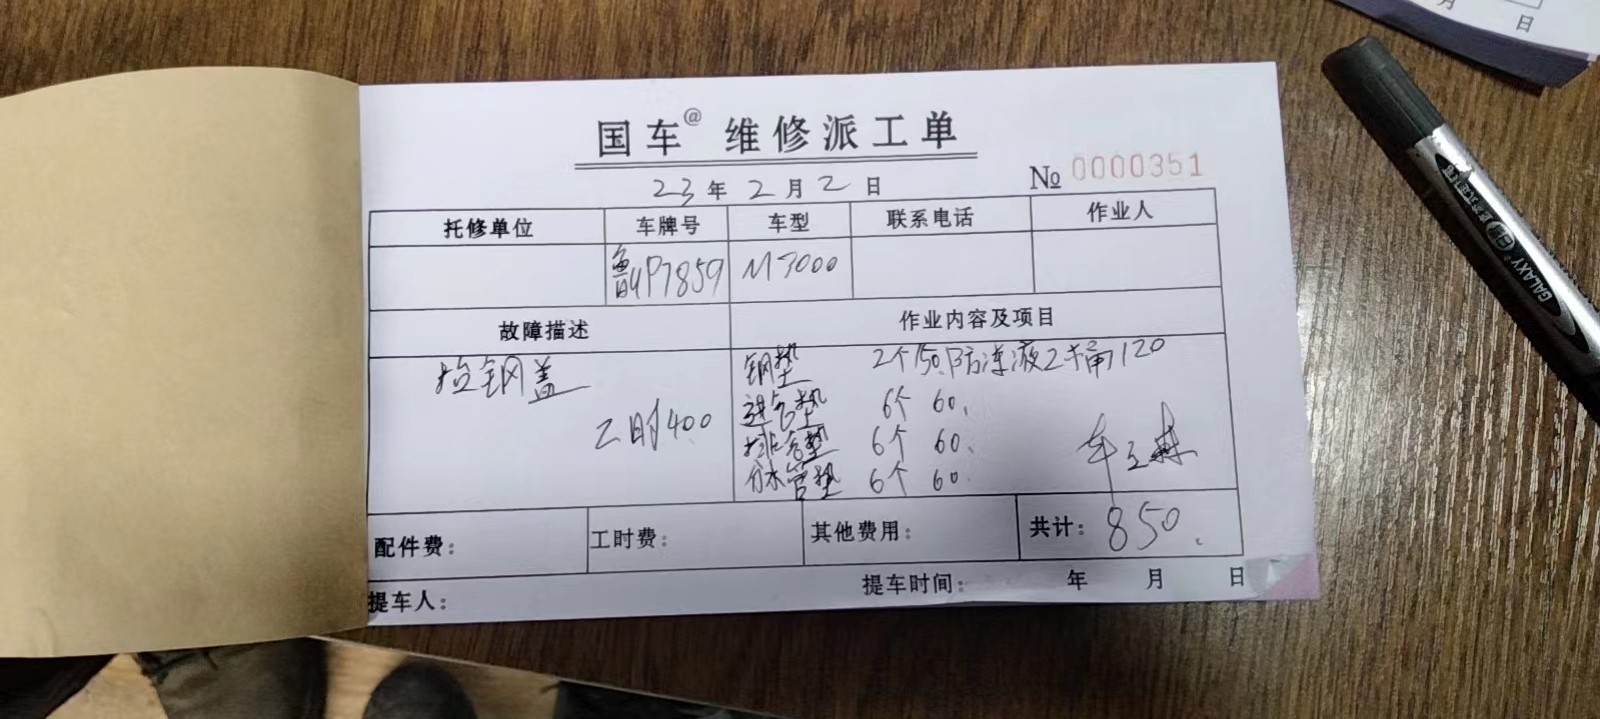 国车@ 维修派工单
23年2月2日 № 0000351
托修单位 车牌号 车型 联系电话 作业人
鲁UP7859 M7000
故障描述 作业内容及项目
捡钢盖 钢垫 2个150.防冻液2桶120
工时400 进气垫 6个 60.
排气垫 6个 60.
分水管垫 6个 60.
配件费： 工时费： 其他费用： 共计：850.
提车人： 提车时间： 年 月 日
月 日
GALAXY